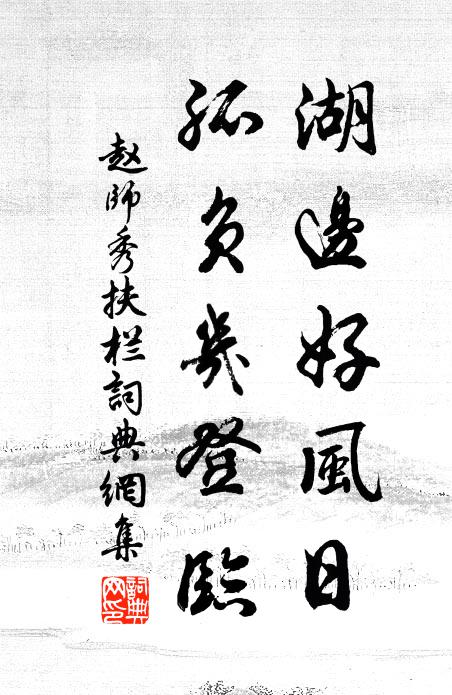 湖邊好風日
孤負幾登臨
赵師秀扶栏詞典網集
詞典
网印